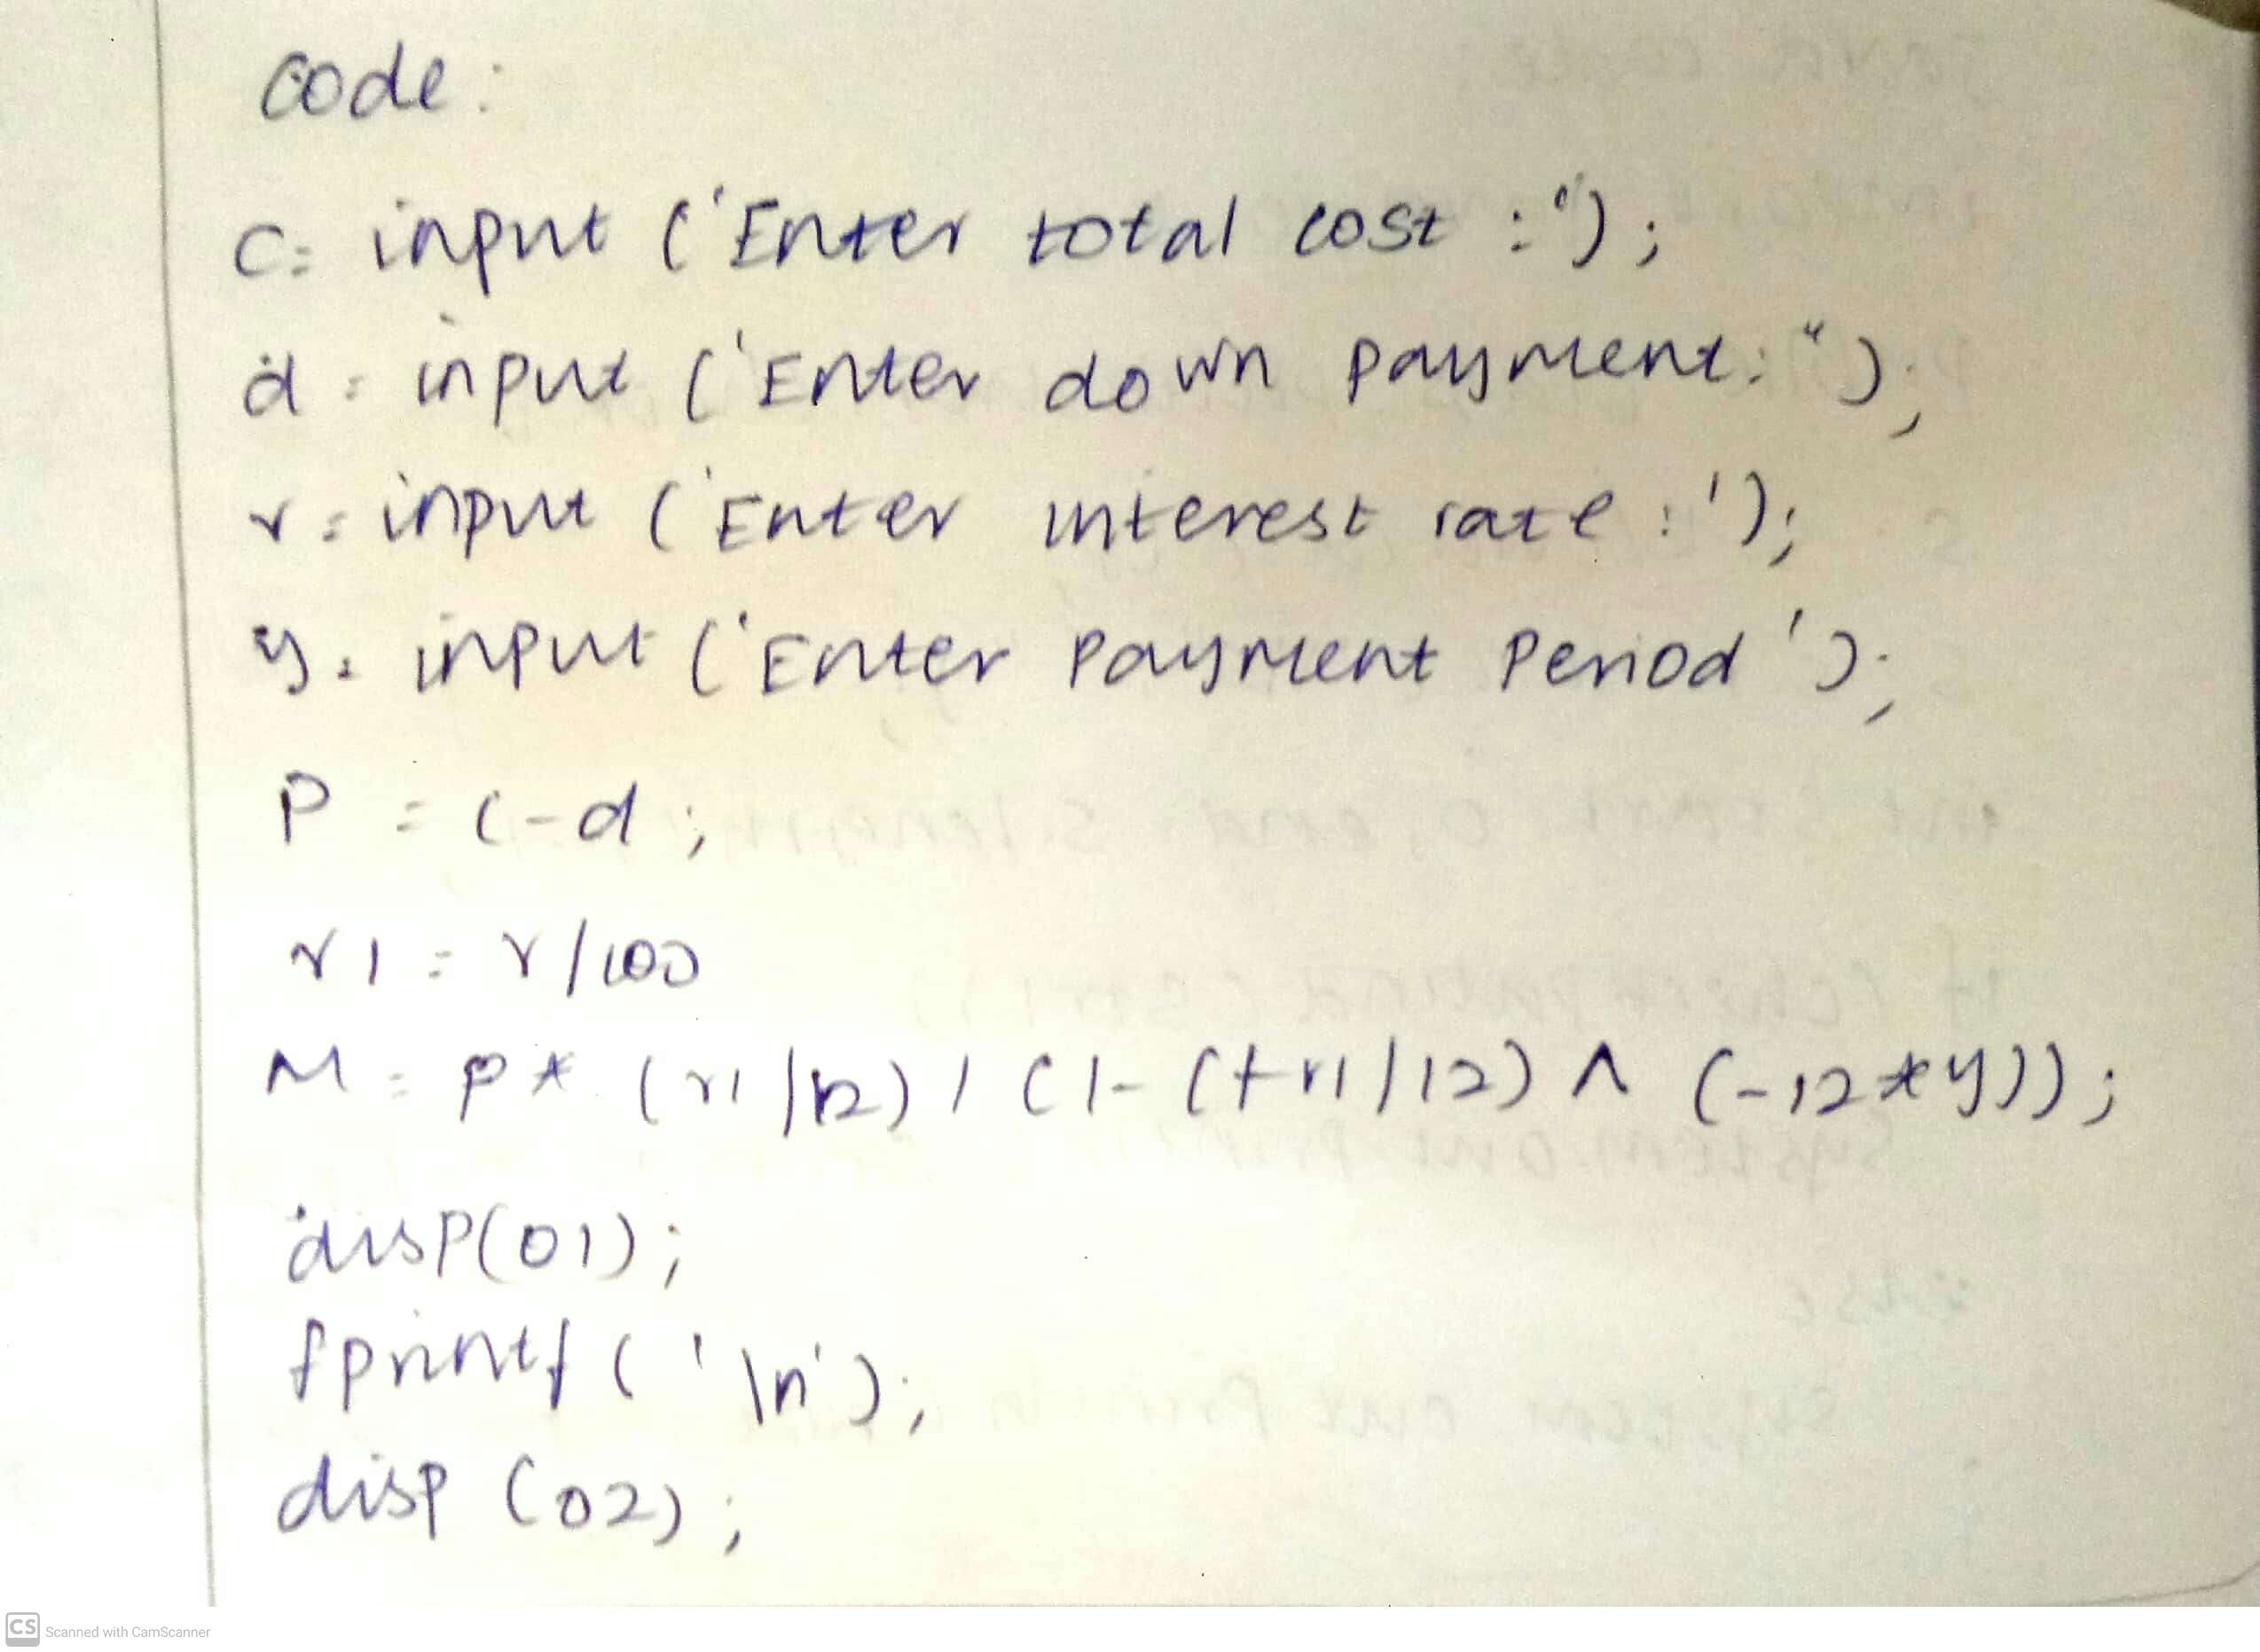 code:
C= input ('Enter total cost :');
d = input ('Enter down payment: ");
r = input ('Enter interest rate :');
y = input ('Enter Payment Period ');
P = C-d ;
r1 = r/100
M = P * (r1/12) / (1- (+r1/12) ^ (-12*y));
disp(01);
fprintf ('\n');
disp (02);
CS Scanned with CamScanner